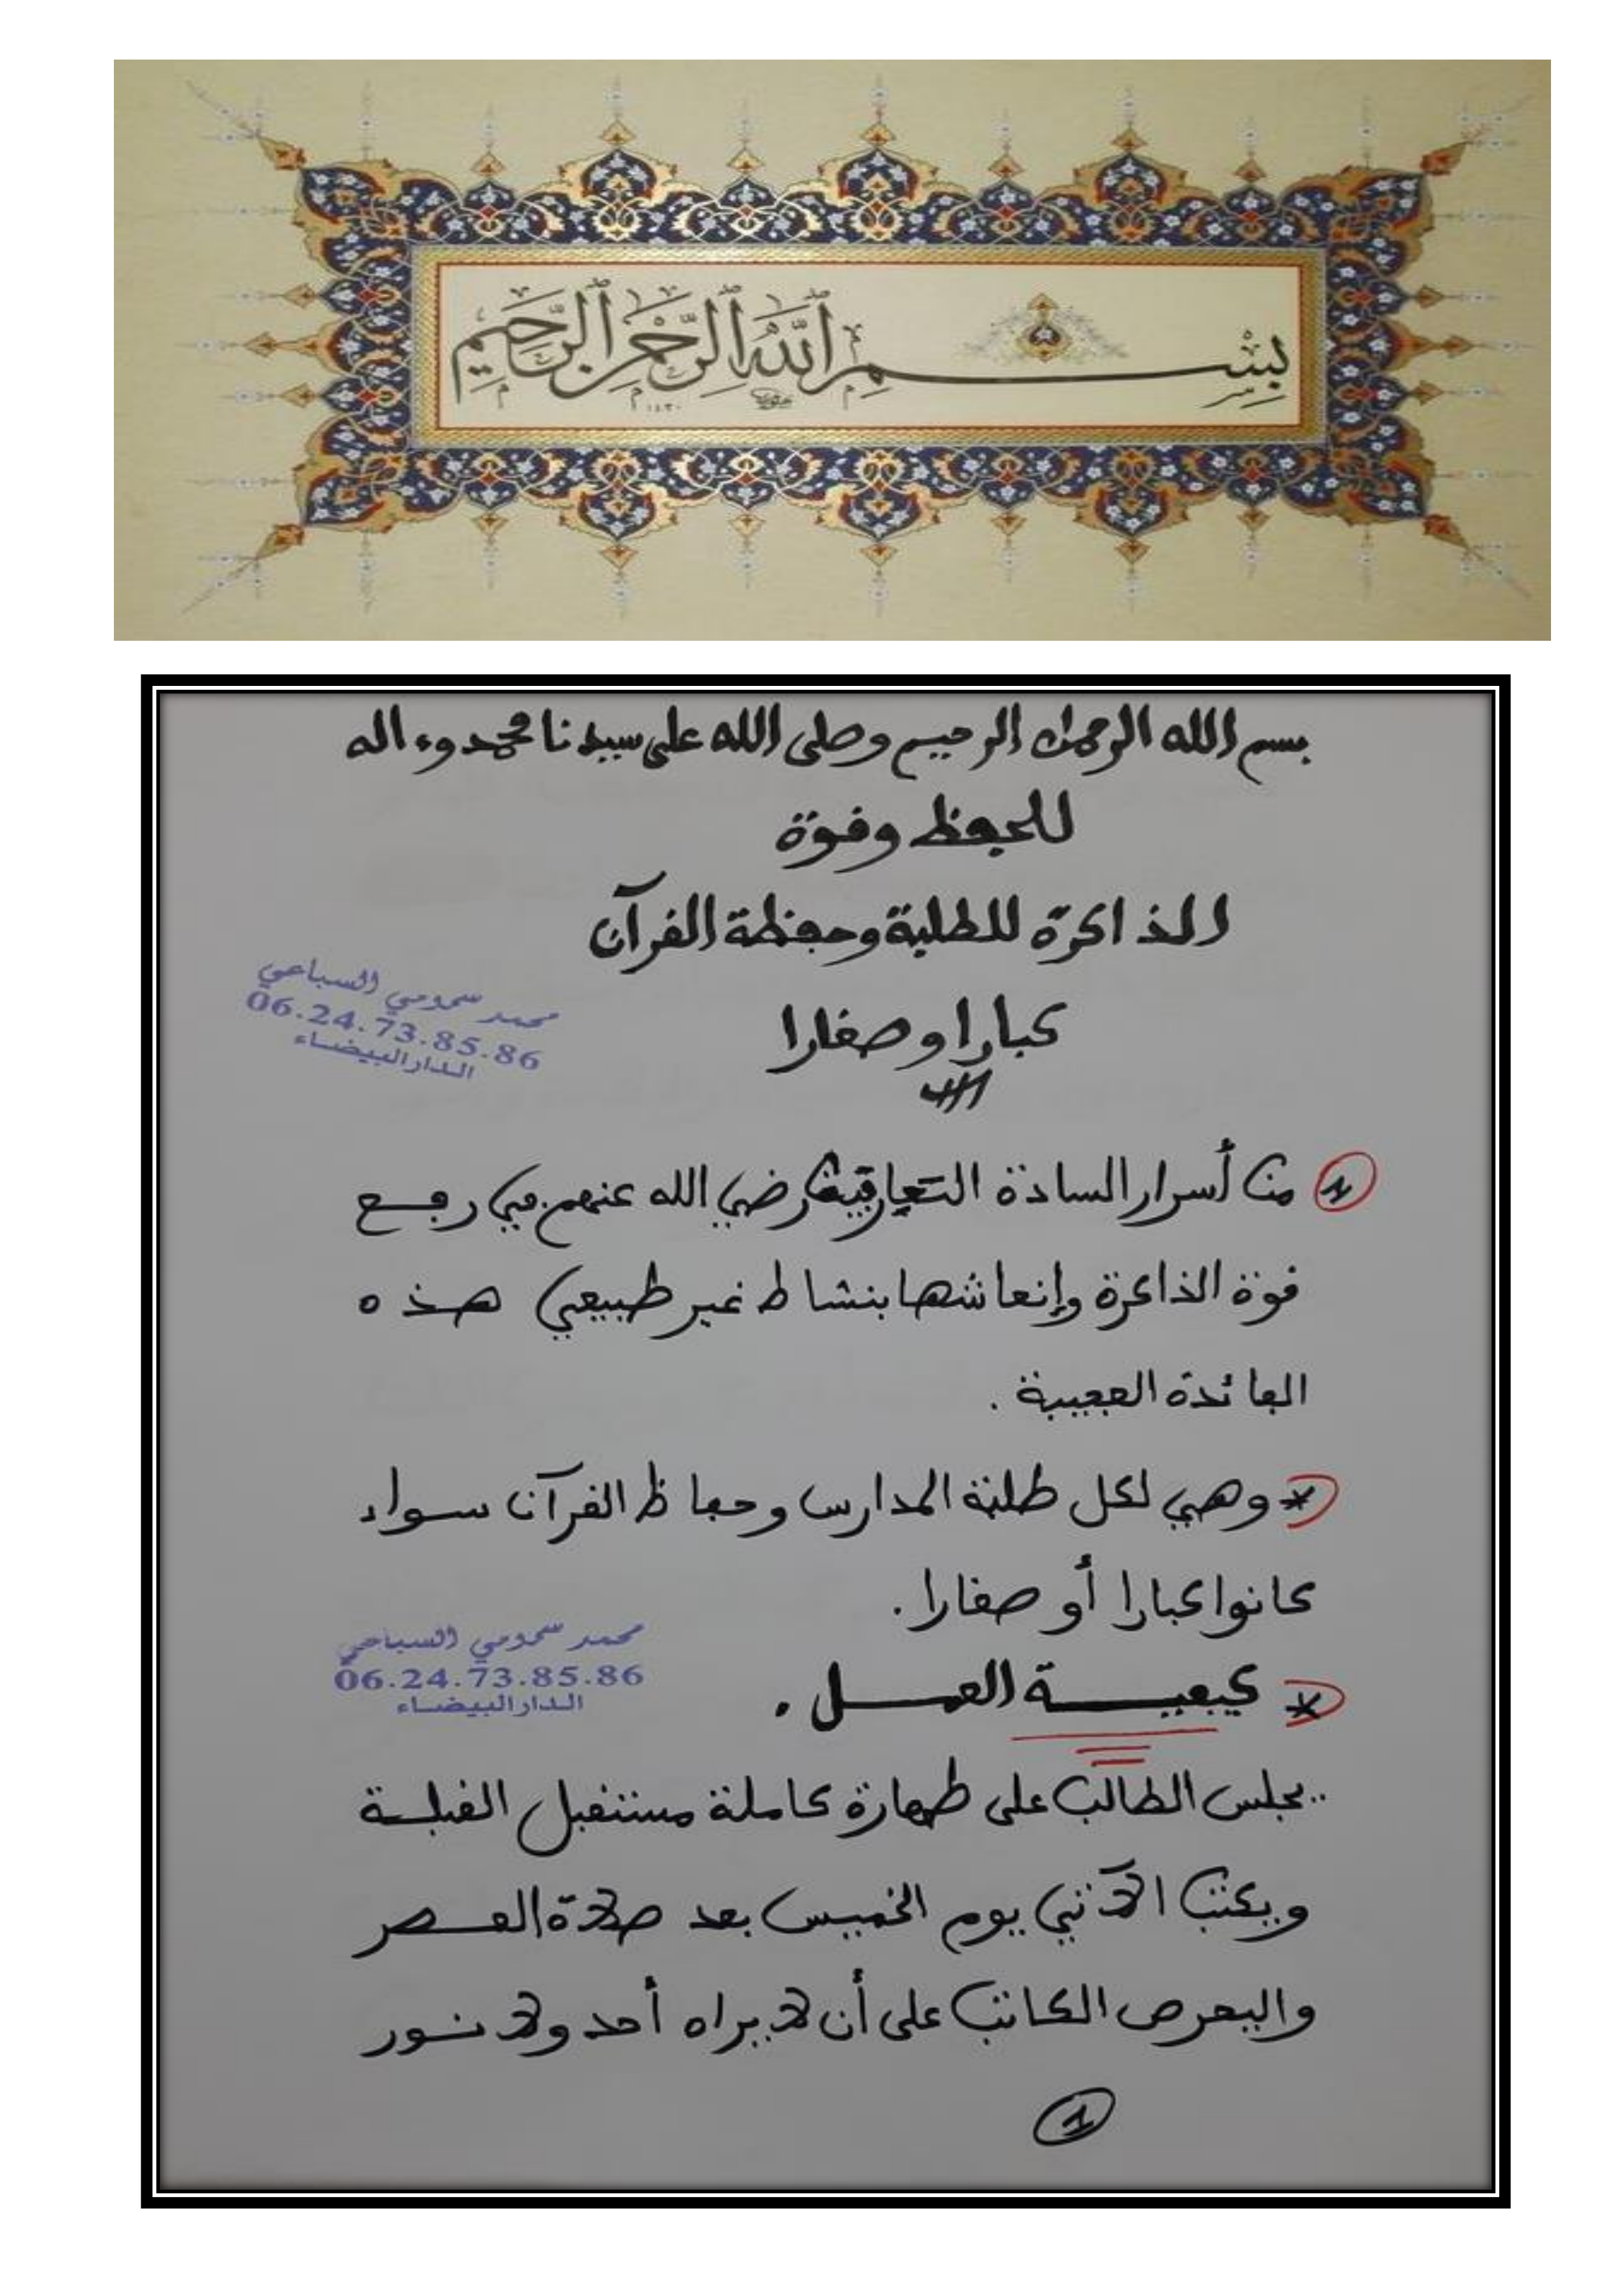 بسم الله الرحمن الرحيم
بسم الله الرحمان الرحيم وصلى الله على سيدنا محمد وءاله
للحفظ وقوة
الذاكرة للطلبة وحفظة القرآن
كبارا وصغارا
محمد سحومي السباعي
06.24.73.85.86
الدار البيضاء
1 من أسرار السادة رضي الله عنهم في رفع
قوة الذاكرة وإنعاشها بنشاط غير طبيعي هذه
الفائدة العجيبة .
* وهي لكل طلبة المدارس وحفاظ القرآن سواء
كانوا كبارا أو صغارا .
محمد سحومي السباعي
06.24.73.85.86
الدار البيضاء
* كيفيــــة العمــــل .
.. يجلس الطالب على طهارة كاملة مستقبل القبلة
ويكتب الآتي يوم الخميس بعد صلاة العصر
واليحرص الكاتب على أن لا يراه أحد ولا نور
1